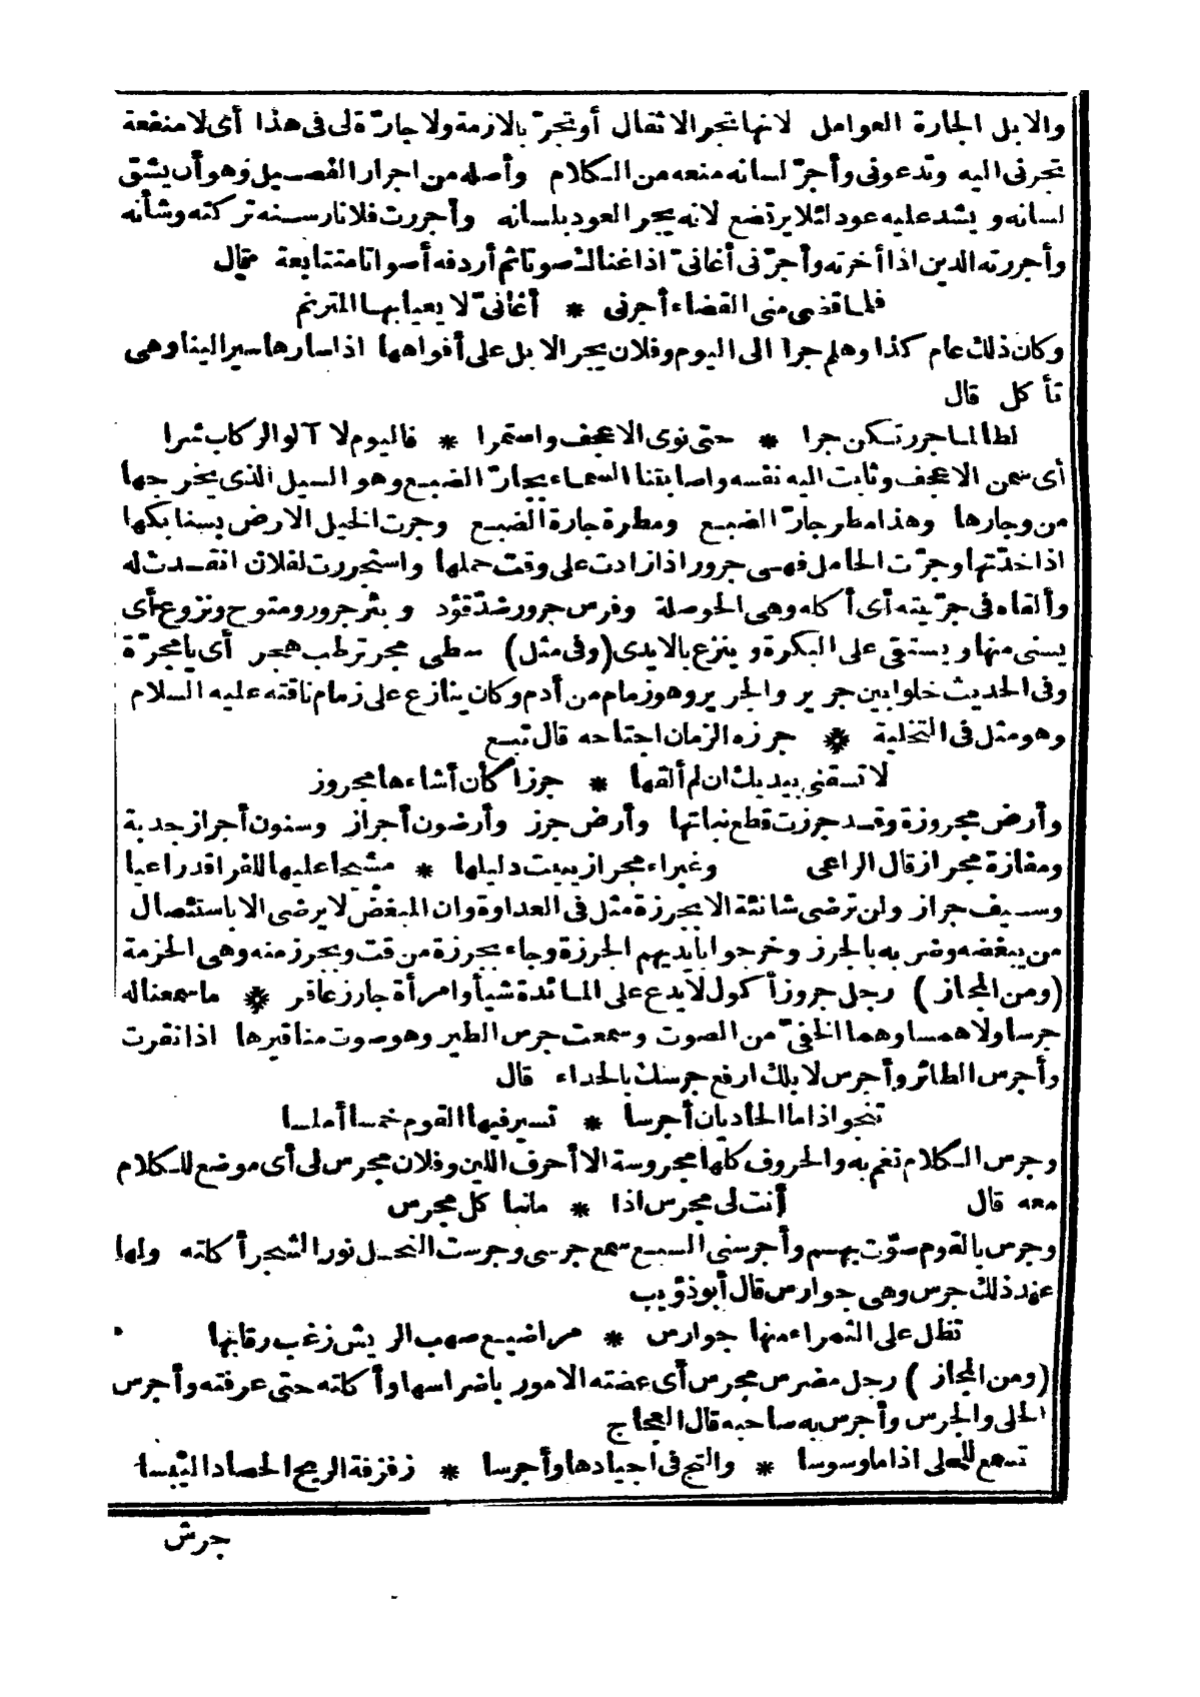 والابل الجارة العوامل لانها تجر الاثقال أو تجرّ بالازمة ولا جارّة لى فى هذا أى لا منفعة
تجرنى اليه وتدعونى وأجرّ لسانه منعه من الكلام وأصله من اجرار الفصيل وهو أن يشق
لسانه ويشد عليه عود لئلا يرتضع لانه يجر العود بلسانه وأجررت فلانا رسنه تركته وشأنه
وأجررته الدين اذا أخرته وأجرّنى أغانىّ اذا غناك صوتا ثم أردفه أصواتا متتابعة قال
فلما قضى منى القضاء أجرنى * أغانىّ لا يعيا بها المترنم
وكان ذلك عام كذا وهلم جرا الى اليوم وفلان يجر الابل على أفواهها اذا سارها سيرا لينا وهى
تأكل قال
لطالما جررتكن جرا * حتى نوى الاعجف واستمرا * فاليوم لا آلو الركاب شرا
أى سمن الاعجف وثابت اليه نفسه واصابتنا السماء بجارّ الضبع وهو السيل الذى يخرجها
من وجارها وهذا مطر جارّ الضبع ومطرة جارة الضبع وجرت الخيل الارض بسنابكها
اذا خدّتها وجرّت الحامل فهى جرور اذا زادت على وقت حملها واستجررت لفلان انقدت له
وألقاه فى جرّيته أى أكله وهى الحوصلة وفرس جرور ضدّ قؤد وبئر جرور ومتوح ونزوع أى
يسنى منها ويستقى على البكرة وينزع بالايدى (وفى مثل) سطى مجر ترطب هجر أى يا مجرّة
وفى الحديث خلوا بين جرير والجرير وهو زمام من أدم وكان ينازع على زمام ناقته عليه السلام
وهو مثل فى التخلية * جرزه الزمان اجتاحه قال تبع
لا تسقنى بيديك ان لم ألقها * جرزا كأن أشاءها مجروز
وأرض مجروزة وقد جرزت قطع نباتها وأرض جرز وأرضون أجراز وسنون أجراز جدبة
ومفازة مجراز قال الراعى وغبراء مجراز يبيت دليلها * مشيحا عليها للفراقد راعيا
وسيف جراز ولن ترضى شانئة الا بجرزة مثل فى العداوة وان المبغض لا يرضى الا باستئصال
من يبغضه وضربه بالجرز وخرجوا بأيديهم الجرزة وجاء بجرزة من قت وبجرز منه وهى الحزمة
(ومن المجاز) رجل جروز أكول لا يدع على المائدة شيأ وامرأة جارز عاقر * ما سمعنا له
جرسا ولا همسا وهما الخفىّ من الصوت وسمعت جرس الطير وهو صوت مناقيرها اذا نقرت
وأجرس الطائر وأجرس لابلك ارفع جرسك بالحداء قال
تنجو اذا ما الحاديان أجرسا * تسير فيها القوم خمسا أملسا
وجرس الكلام نغم به والحروف كلها مجروسة الا أحرف اللين وفلان مجرس لى أى موضع للكلام
معه قال أنت لى مجرس اذا * مانبا كل مجرس
وجرس بالقوم صوّت بهم وأجرسنى السبع سمع جرسى وجرست النحل نور الشجر أكلته ولها
عند ذلك جرس وهى جوارس قال أبو ذؤيب
تظل على الثمراء منها جوارس * مراضيع صهب الريش زغب رقابها
(ومن المجاز) رجل مضرس مجرس أى عضته الامور باضراسها وأكلته حتى عرفته وأجرس
الحلى والجرس وأجرس به صاحبه قال العجاج
تسمع للحلى اذا ما وسوسا * والتج فى أجيادها وأجرسا * زفزفة الريح الحصاد اليبسا
جرش